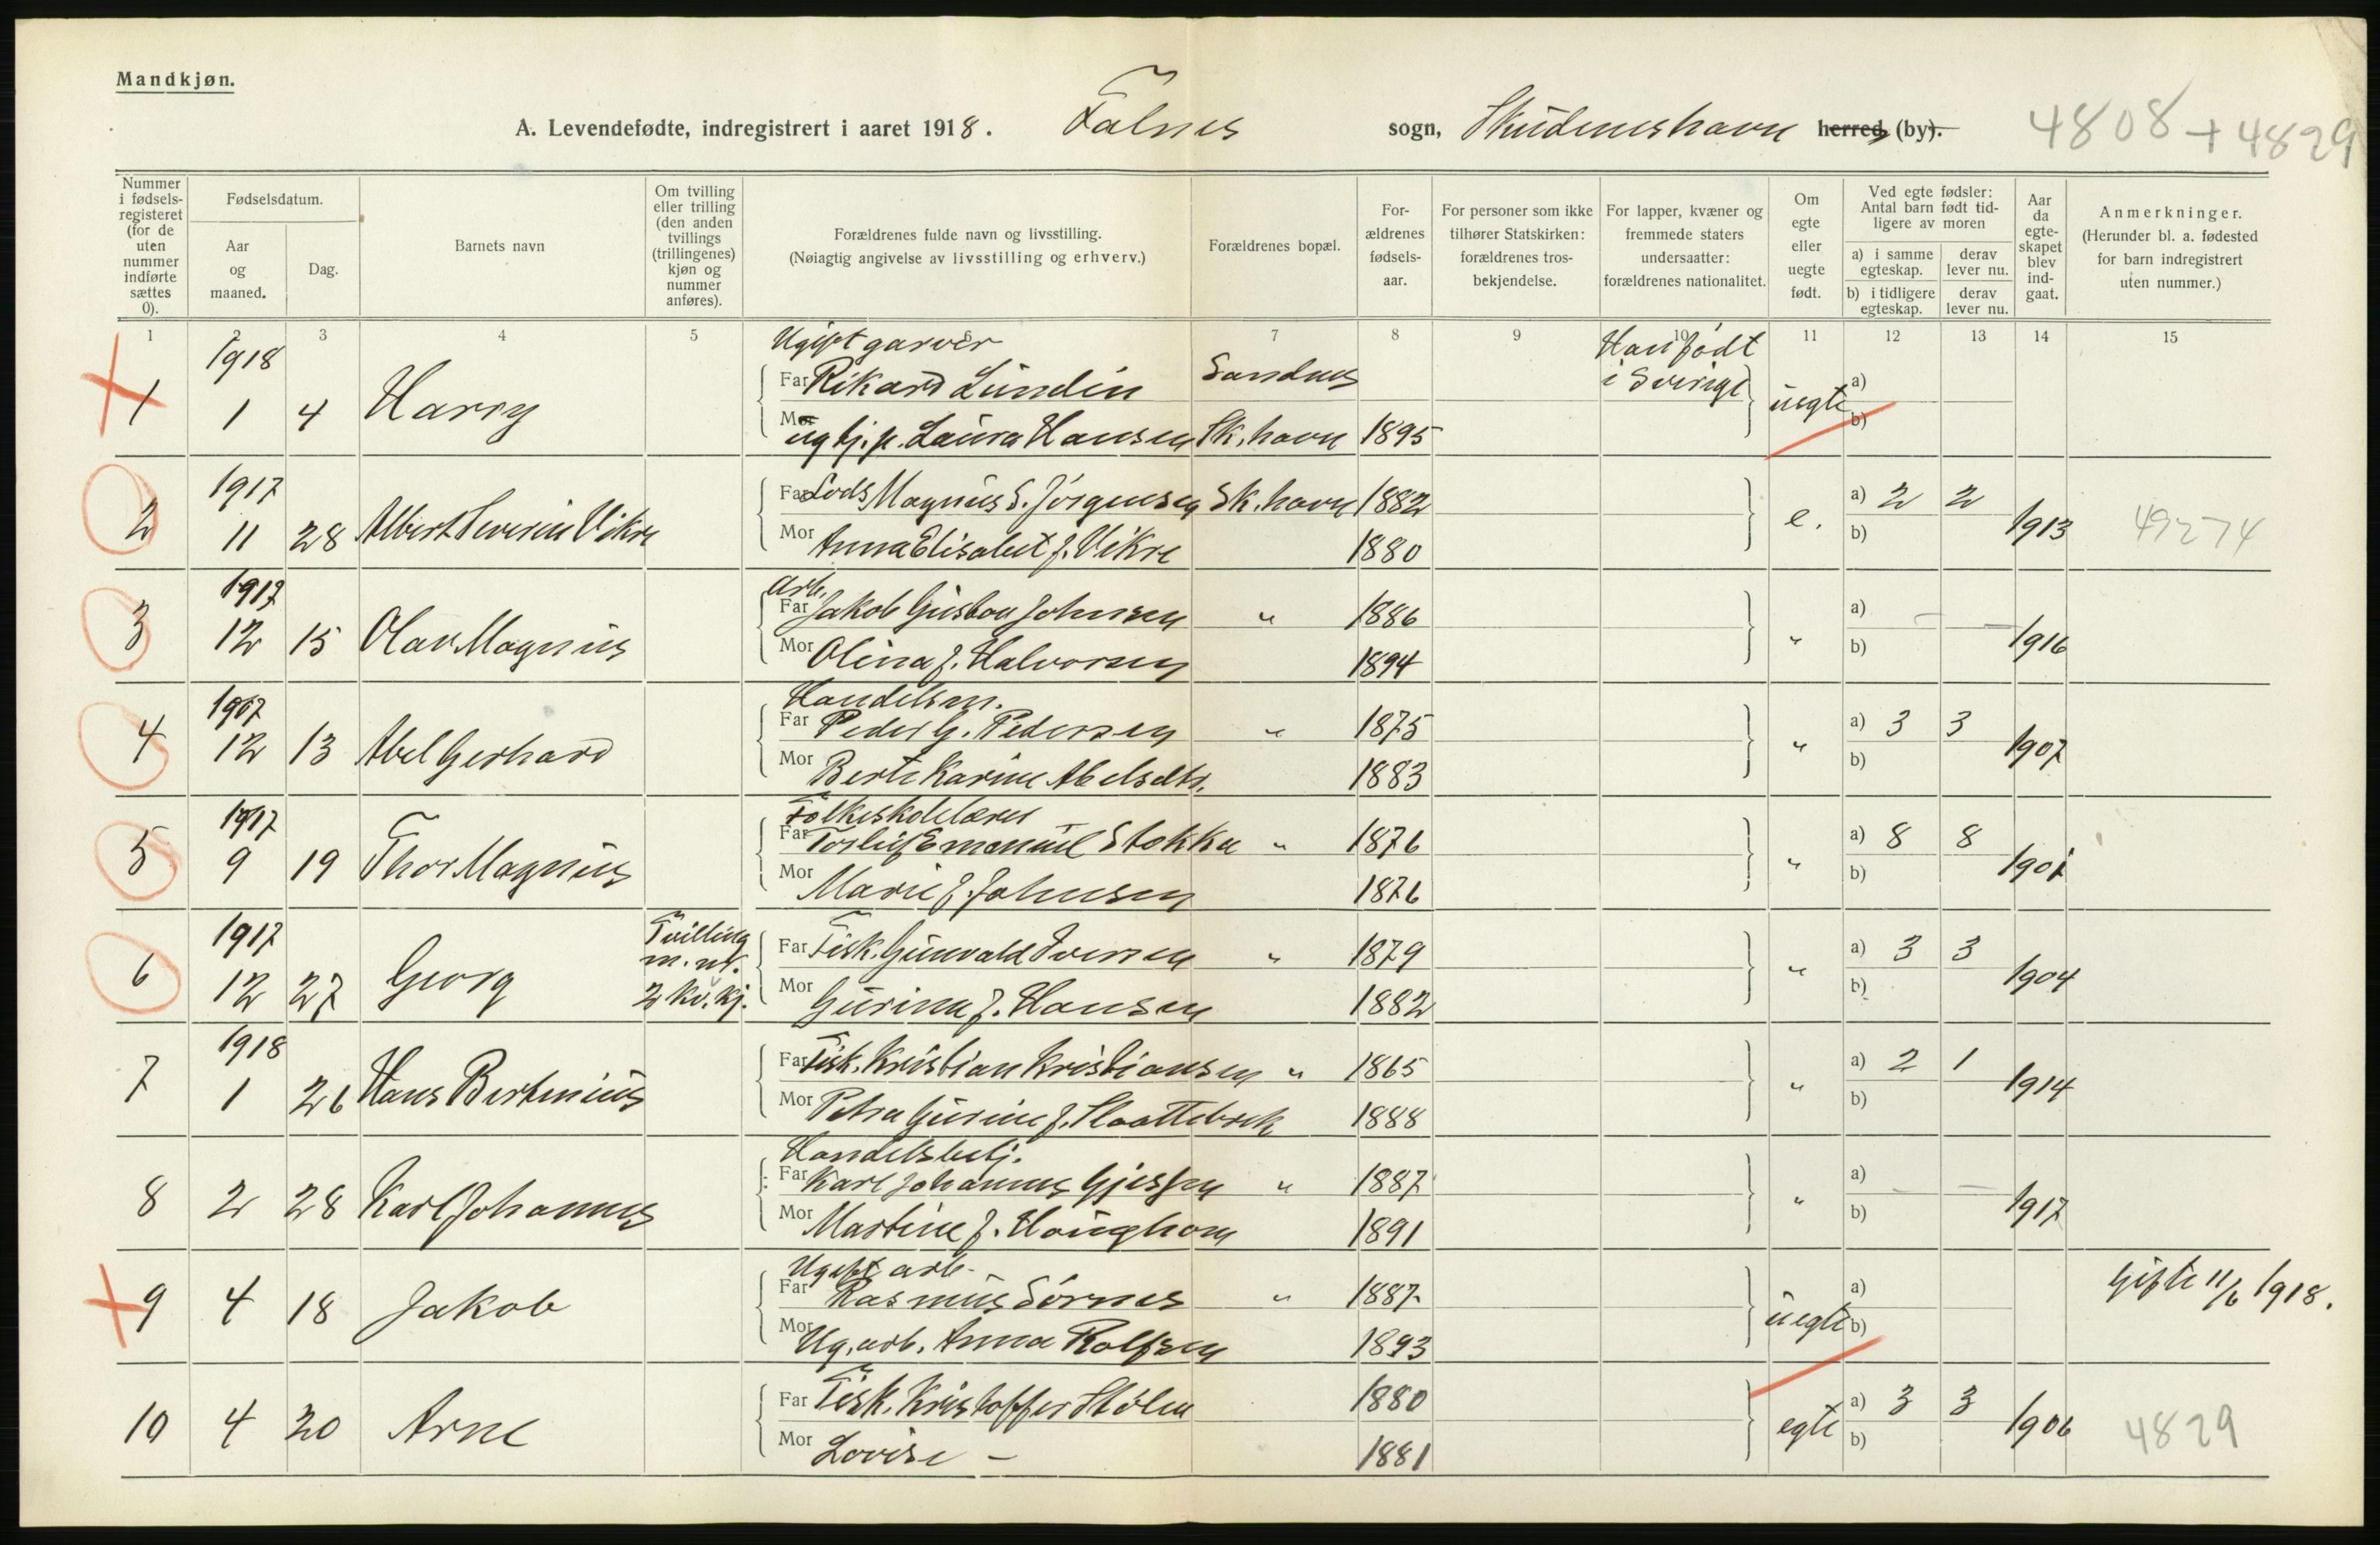 Mandkjøn.
A. Levendefødte, indregistrert i aaret 1918. Falnes sogn, Skudeneshavn herred (by).
4808 + 4829
Nummer i fødselsregisteret (for de uten nummer indførte sættes 0).
Fødselsdatum.
Aar og maaned.
Dag.
Barnets navn
Om tvilling eller trilling (den anden tvillings (trillingenes) kjøn og nummer anføres).
Forældrenes fulde navn og livsstilling.
(Nøiagtig angivelse av livsstilling og erhverv.)
Forældrenes bopæl.
Forældrenes fødselsaar.
For personer som ikke tilhører Statskirken: forældrenes trosbekjendelse.
For lapper, kvæner og fremmede staters undersaatter: forældrenes nationalitet.
Om egte eller uegte født.
Ved egte fødsler: Antal barn født tidligere av moren
a) i samme egteskap.
derav lever nu.
b) i tidligere egteskap.
derav lever nu.
Aar da egteskapet blev indgaat.
Anmerkninger.
(Herunder bl. a. fødested for barn indregistrert uten nummer.)
1 2 3 4 5 6 7 8 9 10 11 12 13 14 15
1918
Ugift garver
Han født
Far Rikard Lundin Sandnes i Sverige a)
1 1 4 Harry uegte
Mor ug tj. p. Laura Hansen Sk.havn 1895 b)
1917
Far Lods Magnus S. Jørgensen Sk.havn 1882 a) 2 2
2 11 28 Albert Severin Vikre e. 1913 49274
Mor Anna Elisabet f. Vikre 1880 b)
1917
Arb.
Far Jakob Gustav Johnsen " 1886 a) - -
3 12 15 Olav Magnus " 1916
Mor Olina f. Halvorsen 1894 b)
1917
Handelsm.
Far Peder G. Pedersen " 1875 a) 3 3
4 12 13 Abel Gerhard " 1907
Mor Berte Karine Abelsdtr. 1883 b)
1917
Folkeskolelærer
Far Torleif Emanuel Stokka " 1876 a) 8 8
5 9 19 Thor Magnus " 1901
Mor Marie f. Johnsen 1876 b)
1917
Tvilling m. nr. 2 kv. kj.
Far Fisk. Gunvald Iversen " 1879 a) 3 3
6 12 27 Georg " 1904
Mor Gurine f. Hansen 1882 b)
1918
Far Fisk. Kristian Kristiansen " 1865 a) 2 1
7 1 26 Hans Bertinius " 1914
Mor Petra Gurine f. Slaattebrek 1888 b)
Handelsbetj.
Far Karl Johannes Gjessen " 1887 a) - -
8 2 28 Karl Johannes " 1917
Mor Martine f. Haughom 1891 b)
Ugift arb.
Far Rasmus Sørnes " 1887 a)
9 4 18 Jakob uegte Gifte 11/6 1918.
Mor Ug. arb. Anna Rolfsen 1893 b)
Far Fisk. Kristoffer Stølen 1880 a) 3 3
10 4 20 Arne egte 1906 4829
Mor Lovise - 1881 b)